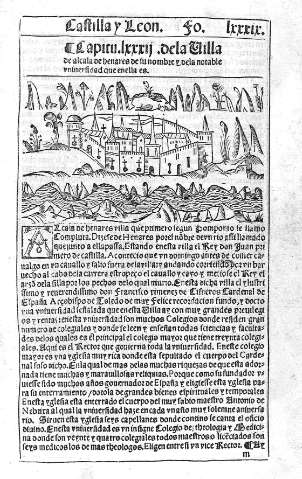 Castilla y Leon. Fo. lxxxix.
Capitu. lxxxij. dela Uilla
de alcala de henares de su nombre y dela notable
vniuersidad que enella es.
Alcala de henares villa que primero segun Pomponio se llamo
Compluta. Dizese de Henares por el nõbre de vn rio assi llamado
que junto a ella passa. Estando enesta villa el Rey don Juan pri
mero de castilla. Acontecio que vn domingo antes de comer ca
ualgo en vn cauallo y salio fuera dela villa: y auiendo corrido por vn bar
uecho al cabo dela carrera estropeço el cauallo y cayo y metiose el Rey el
arzõ dela silla por los pechos delo qual murio. Enesta dicha villa el yllustri
ssimo y reuerendissimo don Francisco ximenez de Cisneros Cardenal de
España Arçobispo de Toledo de muy felice recordacion fundo, y docto
vna vniuersidad señalada que enesta Uilla es con muy grandes preuilegi
os y rentas enesta vniuersidad son muchos Colegios donde residen gran
numero de collegiales y donde se leen y enseñan todas sciencias y faculta
des delos quales es el principal el colegio mayor que tiene treynta colegi
ales. Aqui es el Rector que gouierna toda la vniuersidad. Eneste colegio
mayor es vna yglesia muy rica donde esta sepultado el cuerpo del Carde
nal suso dicho. Enla qual de mas delas muchas riquezas de que esta ado
rnada tiene muchas y marauillosas reliquias. Porque como su fundador vn
uiesse sido muchos años gouernador de España y eligiesse esta yglesia pa
ra su enterramiento dotola de grandes bienes espirituales y temporales
Enesta yglesia esta enterrado el cuerpo del muy sabio maestro Antonio de
Nebrixa al qual la vniuersidad haze en cada vn año muy solemne aniuersa
rio. Siruen esta yglesia seys capellanes donde contino se canta el oficio
diuino. Enesta vniuersidad es vn insigne Colegio de theologia y Medici
na donde son veynte y quatro colegiales todos maestros o licẽciados son
seys medicos los de mas theologos. Eligen entre si vn vice Rector.
m